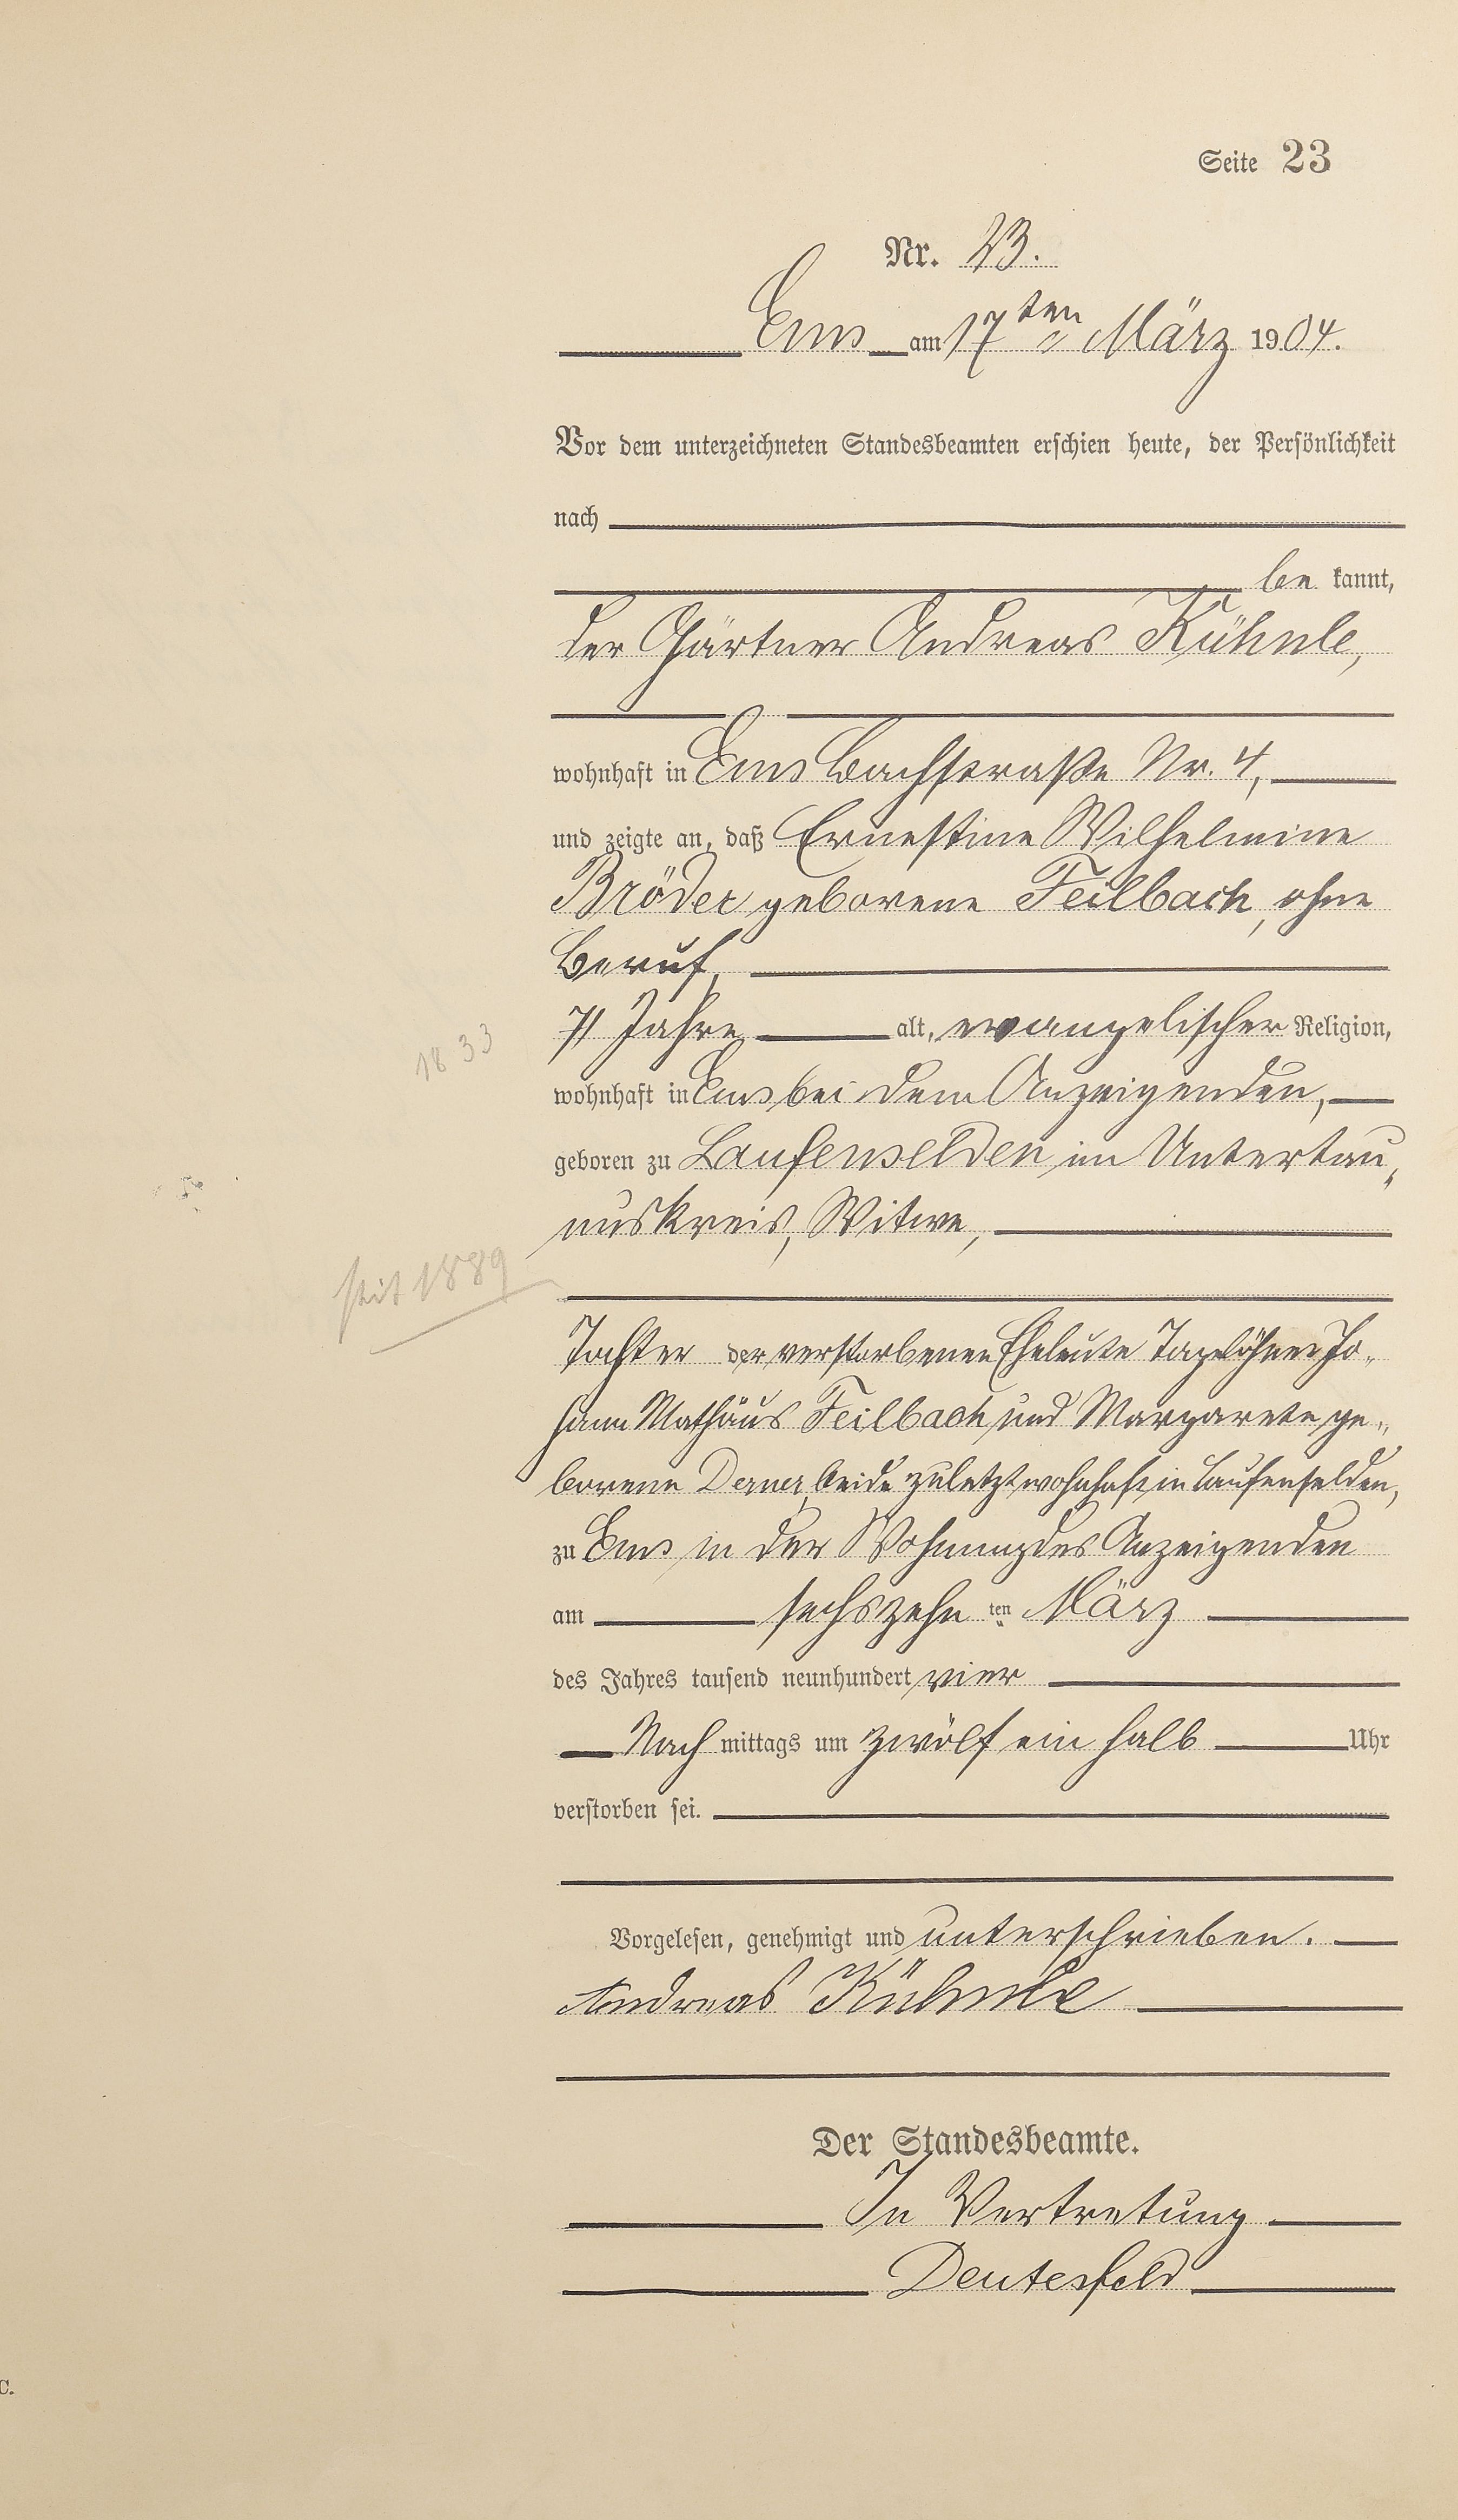 Seite 23
Nr. 23.
Ems am 17ten März 1904.
Vor dem unterzeichneten Standesbeamten erschien heute, der Persönlichkeit
nach
be kannt,
der Gärtner Andreas Kühnle,
wohnhaft in Ems Bachstraße Nr. 4,
und zeigte an, daß Ernestine Wilhelmine
Bröder geborene Feilbach, ohne
Beruf,
71 Jahre alt, evangelischer Religion,
1833
wohnhaft in Ems bei dem Anzeigenden,
geboren zu Laufenselden im Untertau„
nuskreis, Witwe,
seit 1889
Tochter der verstorbenen Eheleute Tagelöhner Jo„
hann Mathäus Feilbach und Margarete ge„
borene Derner, beide zuletzt wohnhaft in Laufenselden,
zu Ems in der Wohnung des Anzeigenden
am sechszehn ten März
des Jahres tausend neunhundert vier
Nach mittags um zwölf ein halb Uhr
verstorben sei.
Vorgelesen, genehmigt und unterschrieben.
Andreas Kühnle
Der Standesbeamte.
In Vertretung
Deutesfeld
C.